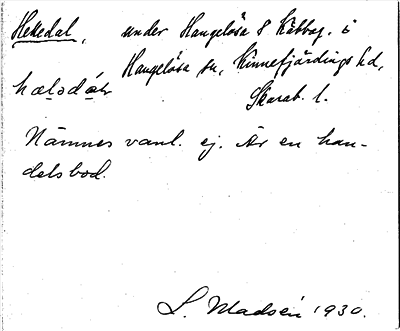 Hekedal, under Hangelösa 8 Käbbag. i
Hangelösa sn, Kinnefjärdings hd,
Skarab. l.
Nämnes vanl. ej. Är en han-
delsbod.
L. Madsén 1930.